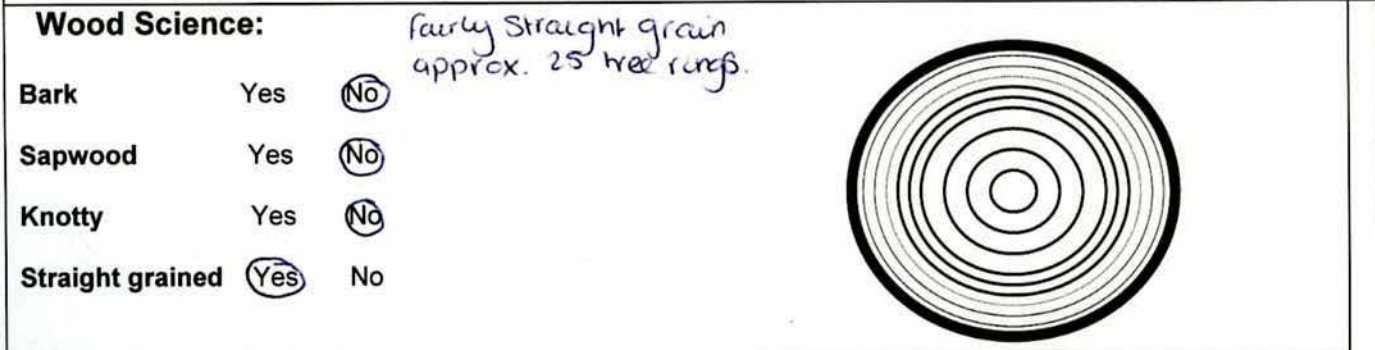 Wood Science:
fairly Straight grain
approx. 25 tree rings.
Bark Yes No
Sapwood Yes No
Knotty Yes No
Straight grained Yes No